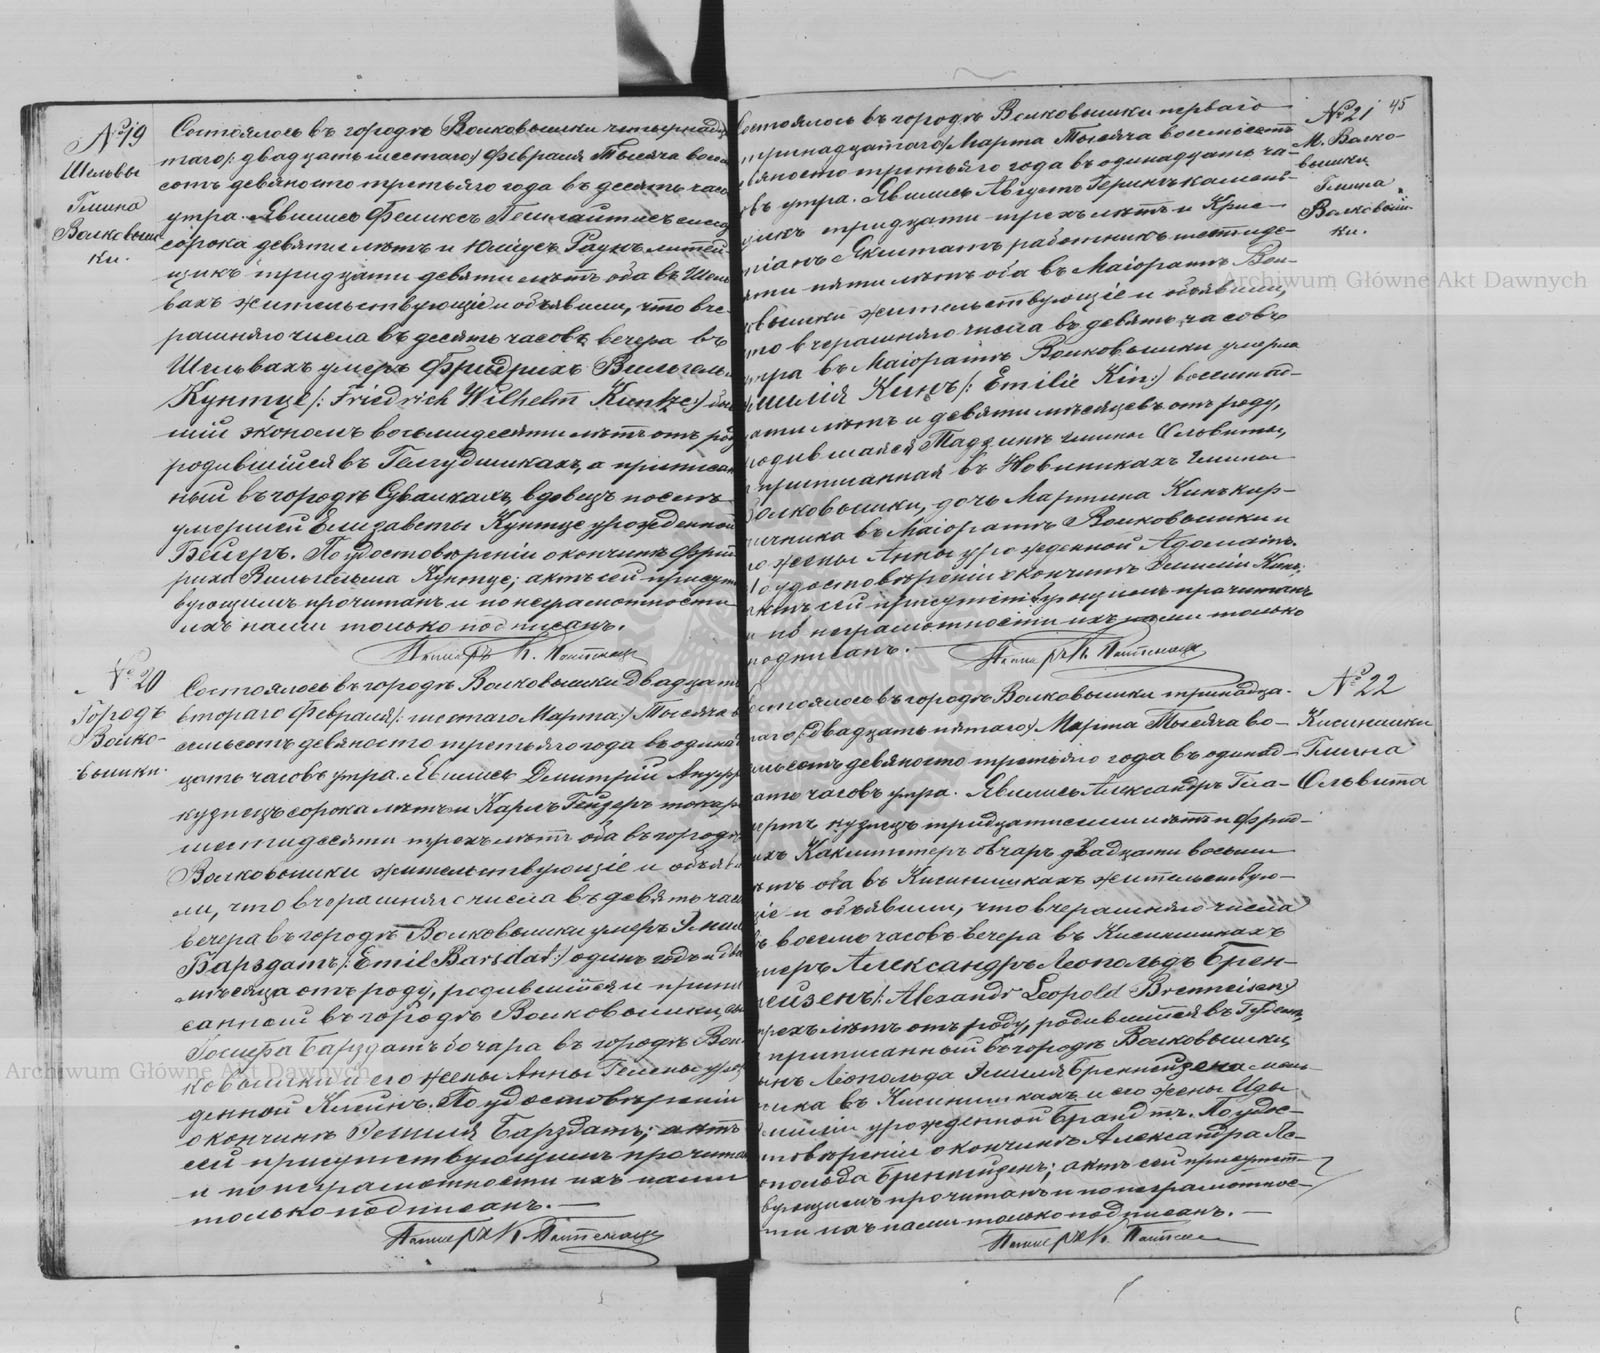 № 19
Шельвы
Гмина
Волковыш
ки.
Состоялось въ городѣ Волковышки четырнадца
таго /: двадцать шестаго:/ Февраля Тысяча восем
сотъ девяносто третьяго года въ десять часо
утра. Явились Феликсъ
сорока девяти лѣтъ и Юліусъ Раукъ
щикъ тридцати девяти лѣтъ оба въ Шель
вахъ жительствующіе и объявили, что вче
рашняго числа въ десять часовъ вечера въ
Шельвахъ умеръ Фридрихъ Вильгельм
Кунтце /: Friedrich Wilhelm Kuntze:/ быв
шій экономъ восьмидесяти лѣтъ отъ род
родившійся въ Гелгудишкахъ, а приписан
ный въ городѣ Сувалкахъ, вдовецъ послѣ
умершей Елизаветы Кунтце урожденной
Бейеръ. По удостовѣреніи о кончинѣ Фрид
риха Вильгельма Кунтце; актъ сей присут
вующимъ прочитанъ и по неграмотности
ихъ нами только подписанъ.
№ 20
Городъ
Волко-
вышки.
Состоялось въ городѣ Волковышки двадцать
втораго Февраля /: шестаго Марта:/ Тысяча в
семьсотъ девяносто третьяго года въ одинад
цать часовъ утра. Явились Дмитрій
кузнецъ сорока лѣтъ и Карлъ Гейзеръ токарь
шестидесяти трехъ лѣтъ оба въ городѣ
Волковышки жительствующіе и объяви
ли, что вчерашняго числа въ девять час
вечера въ городѣ Волковышки умеръ Эмил
Барздатъ /: Emil Barsdat:/ одинъ годъ и два
мѣсяца отъ роду, родившійся и припи
санный въ городѣ Волковышки, сын
Госифа Барздатъ бочара въ городѣ Вол
ковышки и его жены Анны Гелены урож
денной Клейнъ. По удостовѣреніи
о кончинѣ Эмиля Барздатъ; актъ
сей присутствующимъ прочитан
и по неграмотности ихъ нами
только подписанъ. —
45
№ 21
М. Волко-
вышки
Гмина
Волковыш-
ки.
Состоялось въ городѣ Волковышки перваго
тринадцатаго:/ Марта Тысяча восемьсотъ
вяносто третьяго года въ одинадцать ча-
овъ утра. Явились Августъ Герикъ камен-
щикъ тридцати трехъ лѣтъ и Крис-
тіанъ работникъ шестиде-
яти пяти лѣтъ оба въ Маіоратѣ Вол-
овышки жительствующіе и объявили,
что вчерашняго числа въ девять часовъ
утра въ Маіоратѣ Волковышки умерла
Эмилія Кинъ /: Emilie Kin:/ восемнад-
цати лѣтъ и девяти мѣсяцевъ отъ роду,
родившаяся гмины Олвиты,
приписанная въ Новиникахъ Гмины
Волковышки, дочь Мартина Кинъ кир-
ичника въ Маіоратѣ Волковышки и
го жены Анны урожденной Адоматъ.
По удостовѣреніи о кончинѣ Эмиліи Кинъ;
актъ сей присутствующимъ прочитанъ
и по неграмотности ихъ нами только
подписанъ. —
№ 22
Кисинишки
Гмина
Ольвита
Состоялось въ городѣ Волковышки тринадца-
таго /: двадцать пятаго:/ Марта Тысяча во-
семьсотъ девяносто третьяго года въ одинад-
цать часовъ утра. Явились Александръ Гла-
кузнецъ тридцати семи лѣтъ и Фрид-
ихъ овчаръ двадцати восьми
лѣтъ оба въ Кисинишкахъ жительствую-
щіе и объявили, что вчерашняго числа
въ восемь часовъ вечера въ Кисинишкахъ
умеръ Александръ Леопольдъ Брен-
нейзенъ /: Alexandr Leopold Brenneisen:/
трехъ лѣтъ отъ роду, родившійся въ
приписанный въ городѣ Волковышки,
сынъ Леопольда Эмиля Бреннейзена мель-
ника въ Кисинишкахъ и его жены Иды
Эмиліи урожденной Брандтъ. По удос-
товѣреніи о кончинѣ Александра Ле-
опольда Бреннейзенъ; актъ сей присутст-
вующимъ прочитанъ и по неграмотнос-
ти ихъ нами только подписанъ. —
Archiwum Główne Akt Dawnych
Archiwum Główne Akt Dawnych